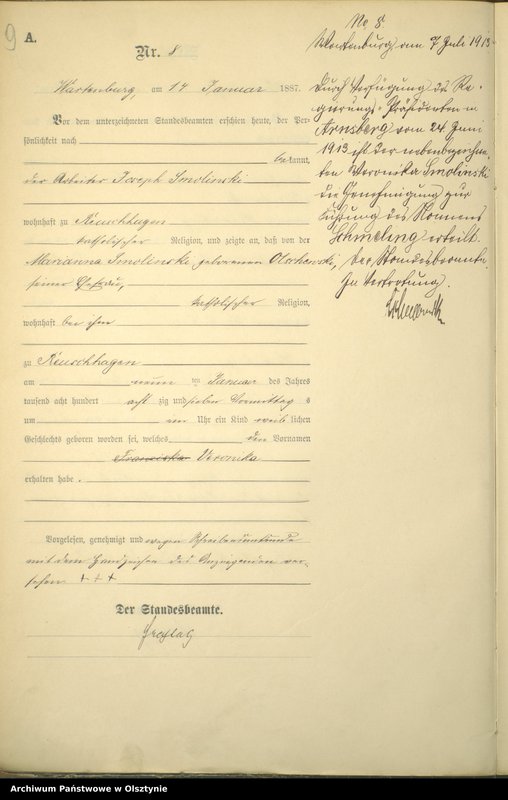 9
A.
Nr. 8
Wartenburg, am 14 Januar 1887.
Vor dem unterzeichneten Standesbeamten erschien heute, der Per-
sönlichkeit nach
bekannt,
der Arbeiter Joseph Smolinski
wohnhaft zu Reuschhagen
katholischer Religion, und zeigte an, daß von der
Marianna Smolinski geborenen Olschewski,
seiner Ehefrau,
katholischer Religion,
wohnhaft bei ihm
zu Reuschhagen
am neun ten Januar des Jahres
tausend acht hundert acht zig und sieben Vormittag s
um um Uhr ein Kind weib lichen
Geschlechts geboren worden sei, welches den Vornamen
Franziska Veronika
erhalten habe.
Vorgelesen, genehmigt und wegen Schreibensunkunde
mit dem Handzeichen des Anzeigenden ver-
sehen +++
Der Standesbeamte.
Freytag
No 8.
Wartenburg, am 7 Juli 1913
Durch Verfügung des Re-
gierungs-Präsidenten in
Arnsberg vom 24. Juni
1913 ist der nebenbezeichne-
ten Veronika Smolinski
die Genehmigung zur
Führung des Namens
Schmeling erteilt.
Der Standesbeamte.
In Vertretung.
Archiwum Państwowe w Olsztynie